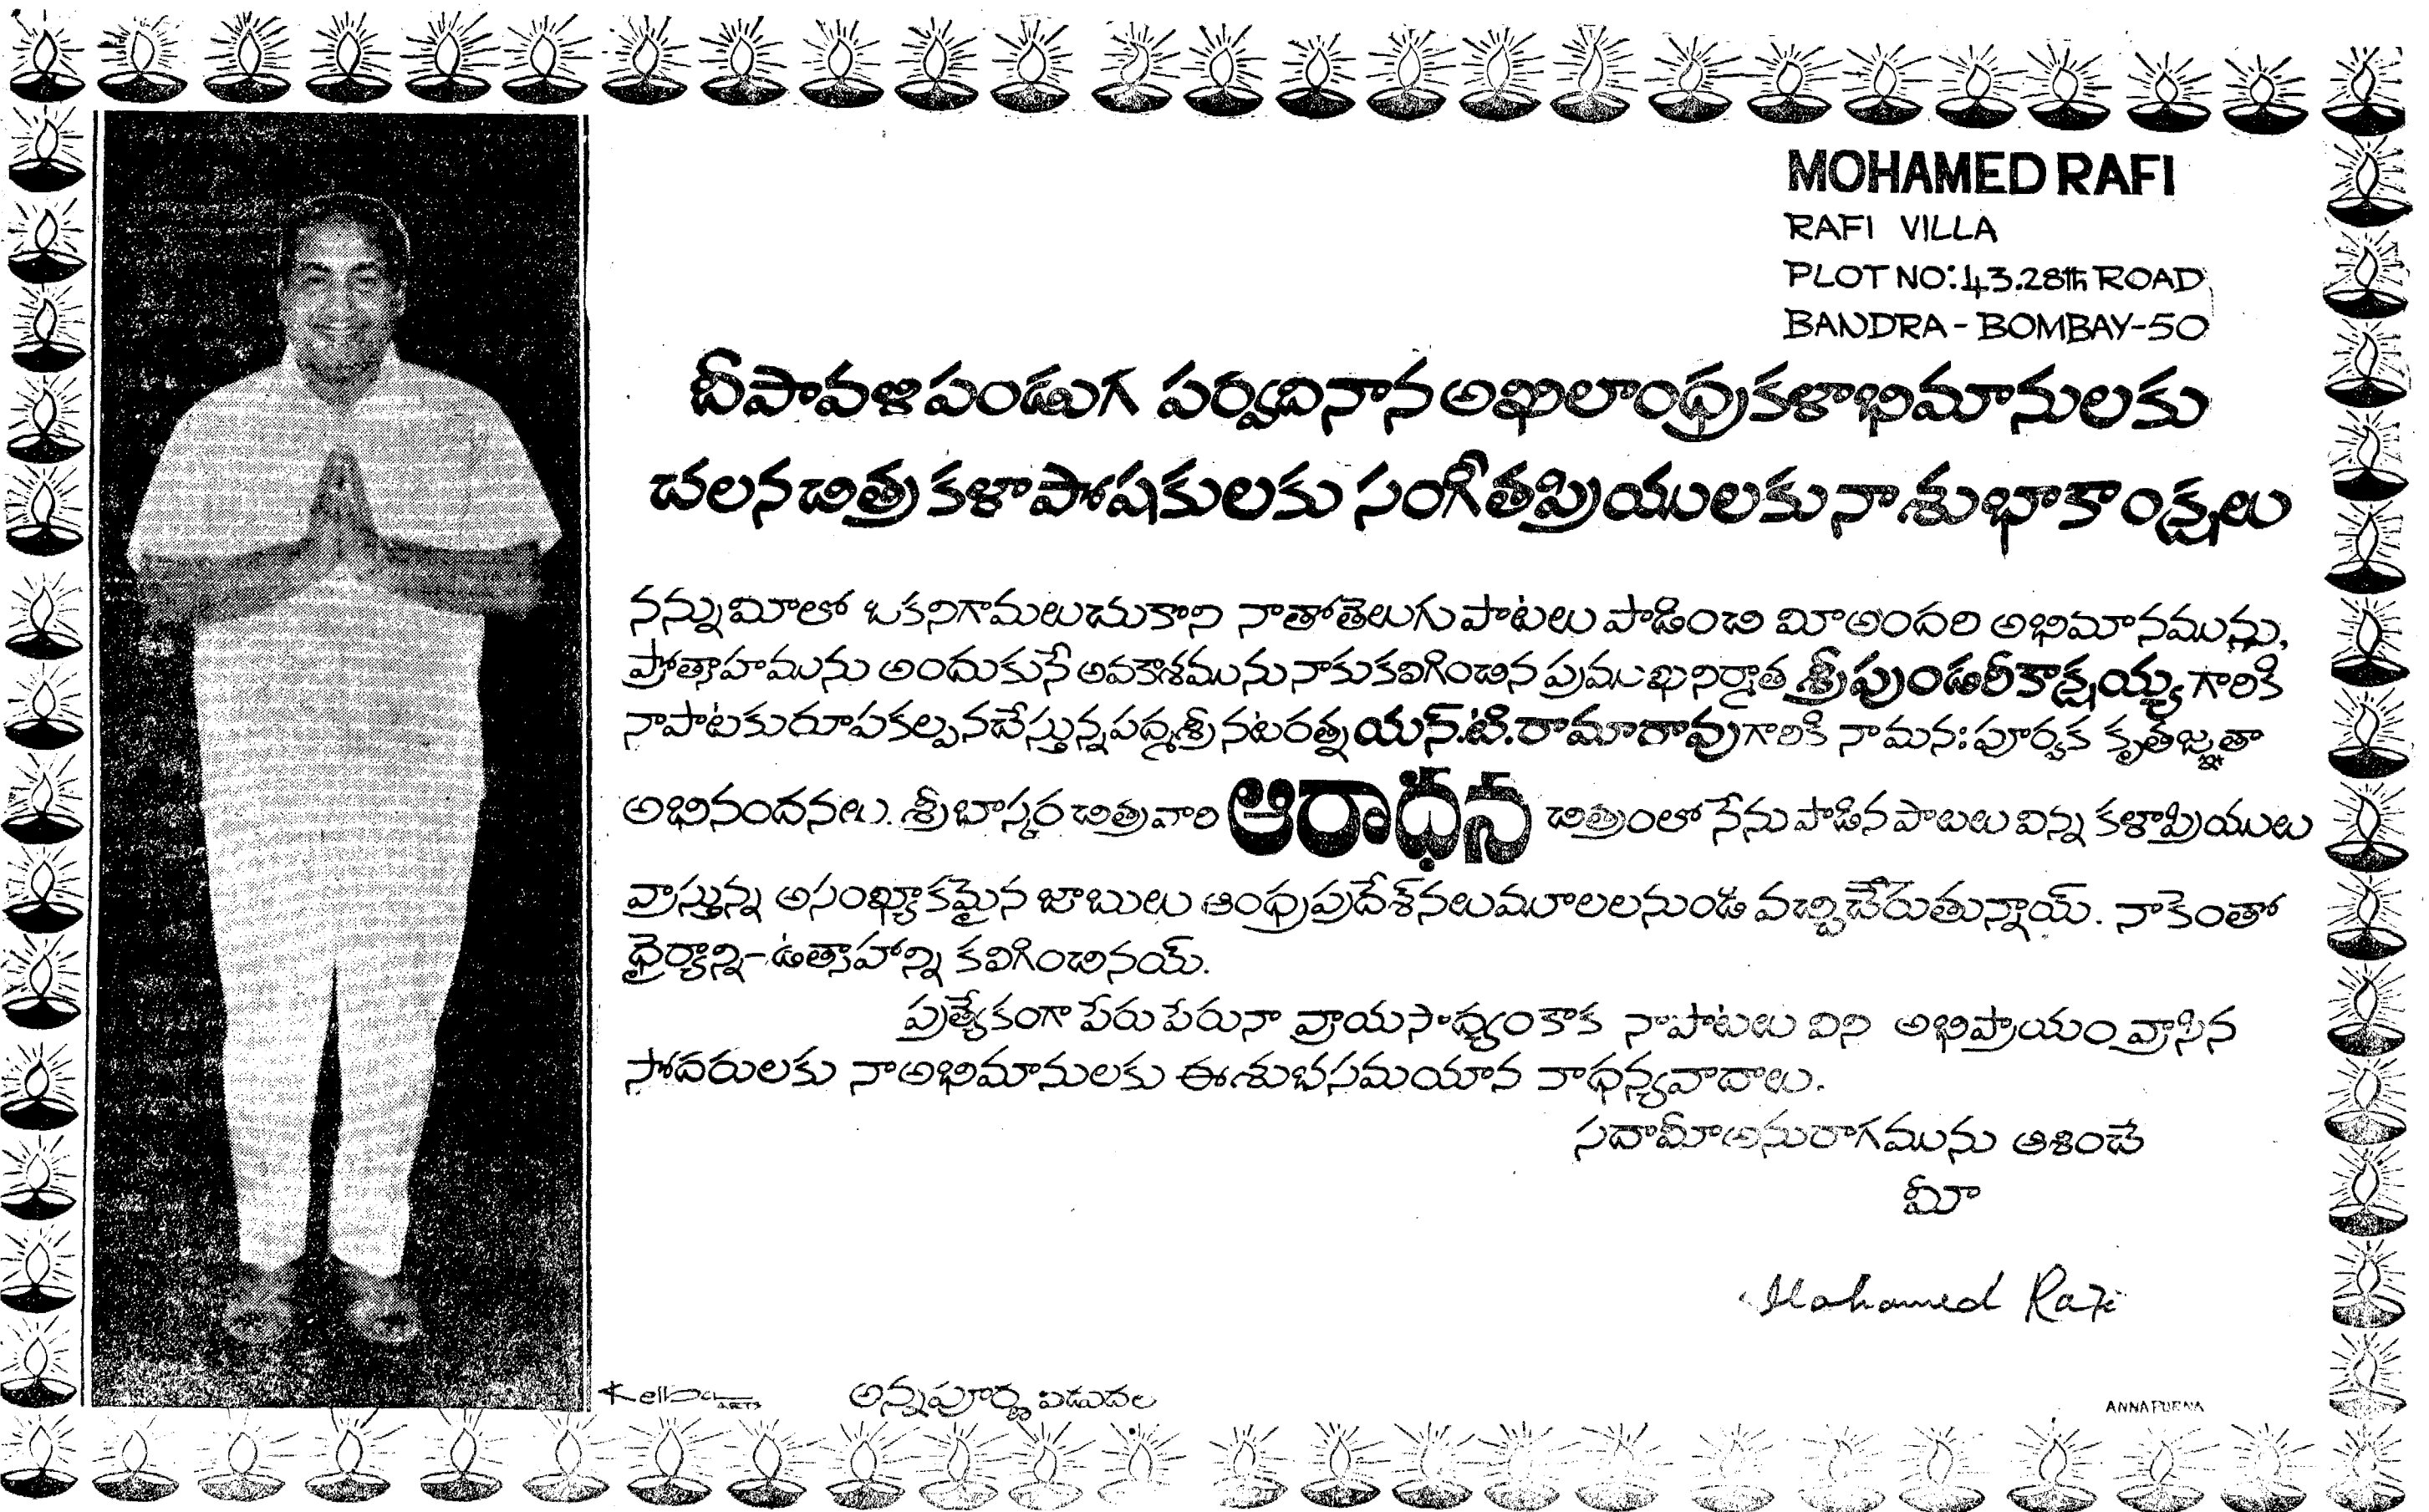 MOHAMED RAFI
RAFI VILLA
PLOT NO: 43. 28th ROAD
BANDRA - BOMBAY-50
దీపావళి పండుగ పర్వదినాన అఖిలాంధ్ర కళాభిమానులకు
చలన చిత్ర కళా పోషకులకు సంగీత ప్రియులకు నా శుభాకాంక్షలు
నన్ను మీలో ఒకనిగా మలుచుకొని నాతో తెలుగు పాటలు పాడించి మీ అందరి అభిమానమును,
ప్రోత్సాహమును అందుకునే అవకాశమును నాకు కలిగించిన ప్రముఖ నిర్మాత శ్రీ పుండరీకాక్షయ్య గారికి
నా పాటకు రూపకల్పన చేస్తున్న పద్మశ్రీ నటరత్న యన్.టి. రామారావు గారికి నా మనఃపూర్వక కృతజ్ఞతా
అభినందనలు. శ్రీ భాస్కర చిత్ర వారి ఆరాధన చిత్రంలో నేను పాడిన పాటలు విన్న కళాప్రియులు
వ్రాస్తున్న అసంఖ్యాకమైన జాబులు ఆంధ్రప్రదేశ్ నలుమూలలనుండి వచ్చి చేరుతున్నాయ్. నాకెంతో
ధైర్యాన్ని - ఉత్సాహాన్ని కలిగించినయ్.
ప్రత్యేకంగా పేరు పేరునా వ్రాయ సాధ్యం కాక నా పాటలు విని అభిప్రాయం వ్రాసిన
సోదరులకు నా అభిమానులకు ఈ శుభసమయాన నా ధన్యవాదాలు.
సదా మీ అనురాగమును ఆశించే
మీ
Mohamed Rafi
ARTS అన్నపూర్ణ విడుదల ANNAPURNA